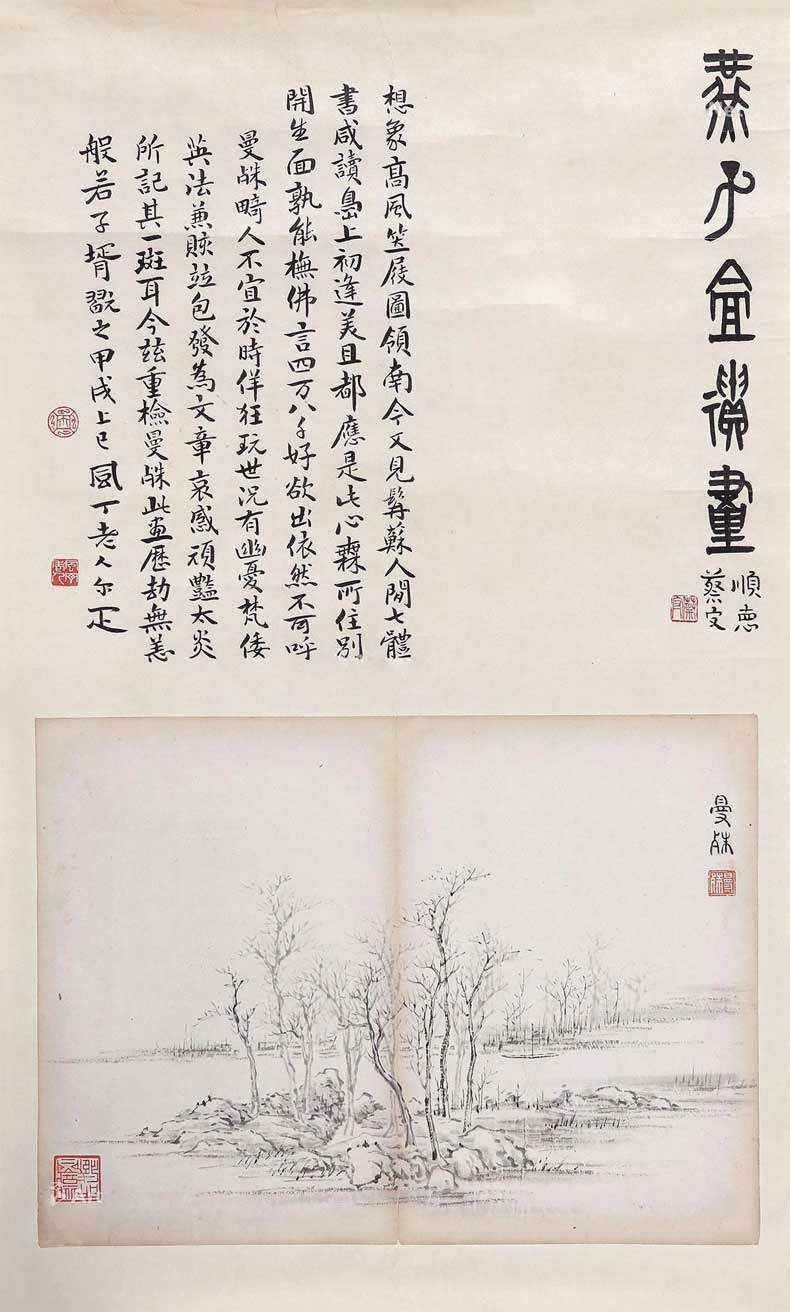 燕子龕遺畫
順悳
蔡守
想象高風笠屐圖領南今又見髯蘇人間七體
書咸讀島上初逢美且都應是此心橆所住別
開生面孰能橅佛言四万八千好欲出依然不可呼
曼殊畸人不宜於時佯狂玩世況有幽憂梵倭
英法兼賅竝包發為文章哀感頑豔太炎
所記其一斑耳今茲重檢曼殊此畫歷劫無恙
般若子壻翫之甲戌上巳風丁老人尔疋
曼殊